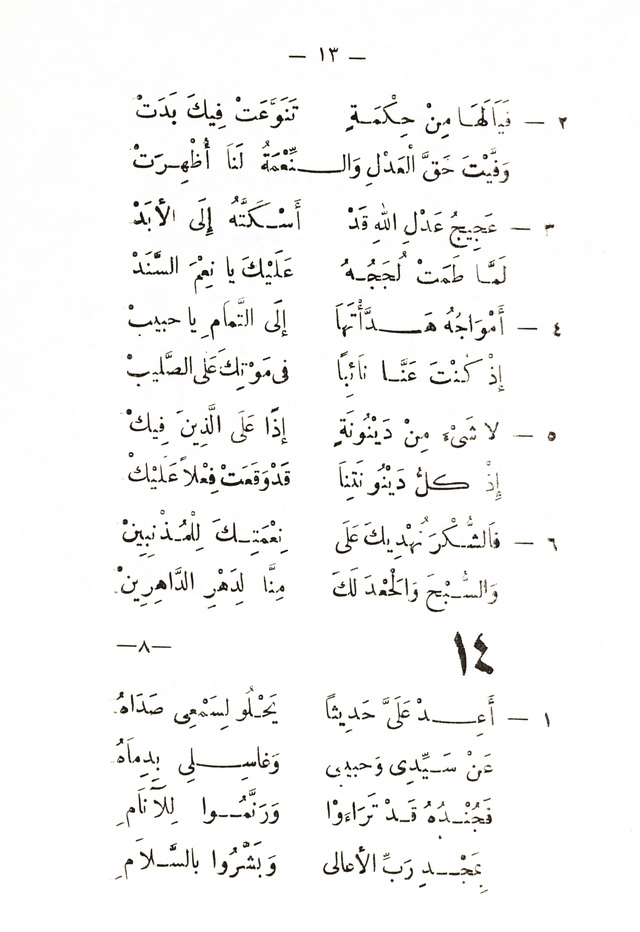 — ١٣ —
٢ — فَيَالَهَا مِنْ حِكْمَةٍ تَنَوَّعَتْ فِيكَ بَدَتْ
وَفَّيْتَ حَقَّ الْعَدْلِ وَالنِّعْمَةُ لَنَا أُظْهِرَتْ
٣ — عَجِيجُ عَدْلِ اللهِ قَدْ أَسْكَتَّهُ إِلَى الأَبَدْ
لَمَّا طَمَتْ لُجَجُهُ عَلَيْكَ يا نِعْمَ السَّنَدْ
٤ — أَمْوَاجُهُ هَدَّأْتَهَا إلَى التَّمَامِ يا حبيبْ
إذْ كُنْتَ عَنَّا نَائِبًا فى مَوْتِكَ عَلَى الصَّليبْ
٥ — لا شَىْءَ مِنْ دَيْنُونَةٍ إذًا عَلَى الَّذِينَ فِيكْ
إِذْ كلُّ دَيْنُونَتِنَا قَدْ وَقَعَتْ فِعْلاً عَلَيْكْ
٦ — فَالشُّكْرَ نُهْدِيكَ عَلَى نِعْمَتِكَ لِلْمُذْنِبِينْ
وَالسُّبْحَ وَالْحَمْدَ لَكَ مِنَّا لِدَهْرِ الدَّاهِرِينْ
١٤ —٨—
١ — أَعِدْ عَلَىَّ حَدِيثًا يَحْلُو لِسَمْعِى صَدَاهُ
عَنْ سَيِّدِى وَحبيبى وَغاسِلِي بِدِمَاهُ
فَجُنْدُهُ قَدْ تَرَاءَوْا وَرَنَّمُوا لِلأَنَامِ
بِمَجْدِ رَبِّ الأعالى وَبَشَّرُوا بالسَّلاَمِ